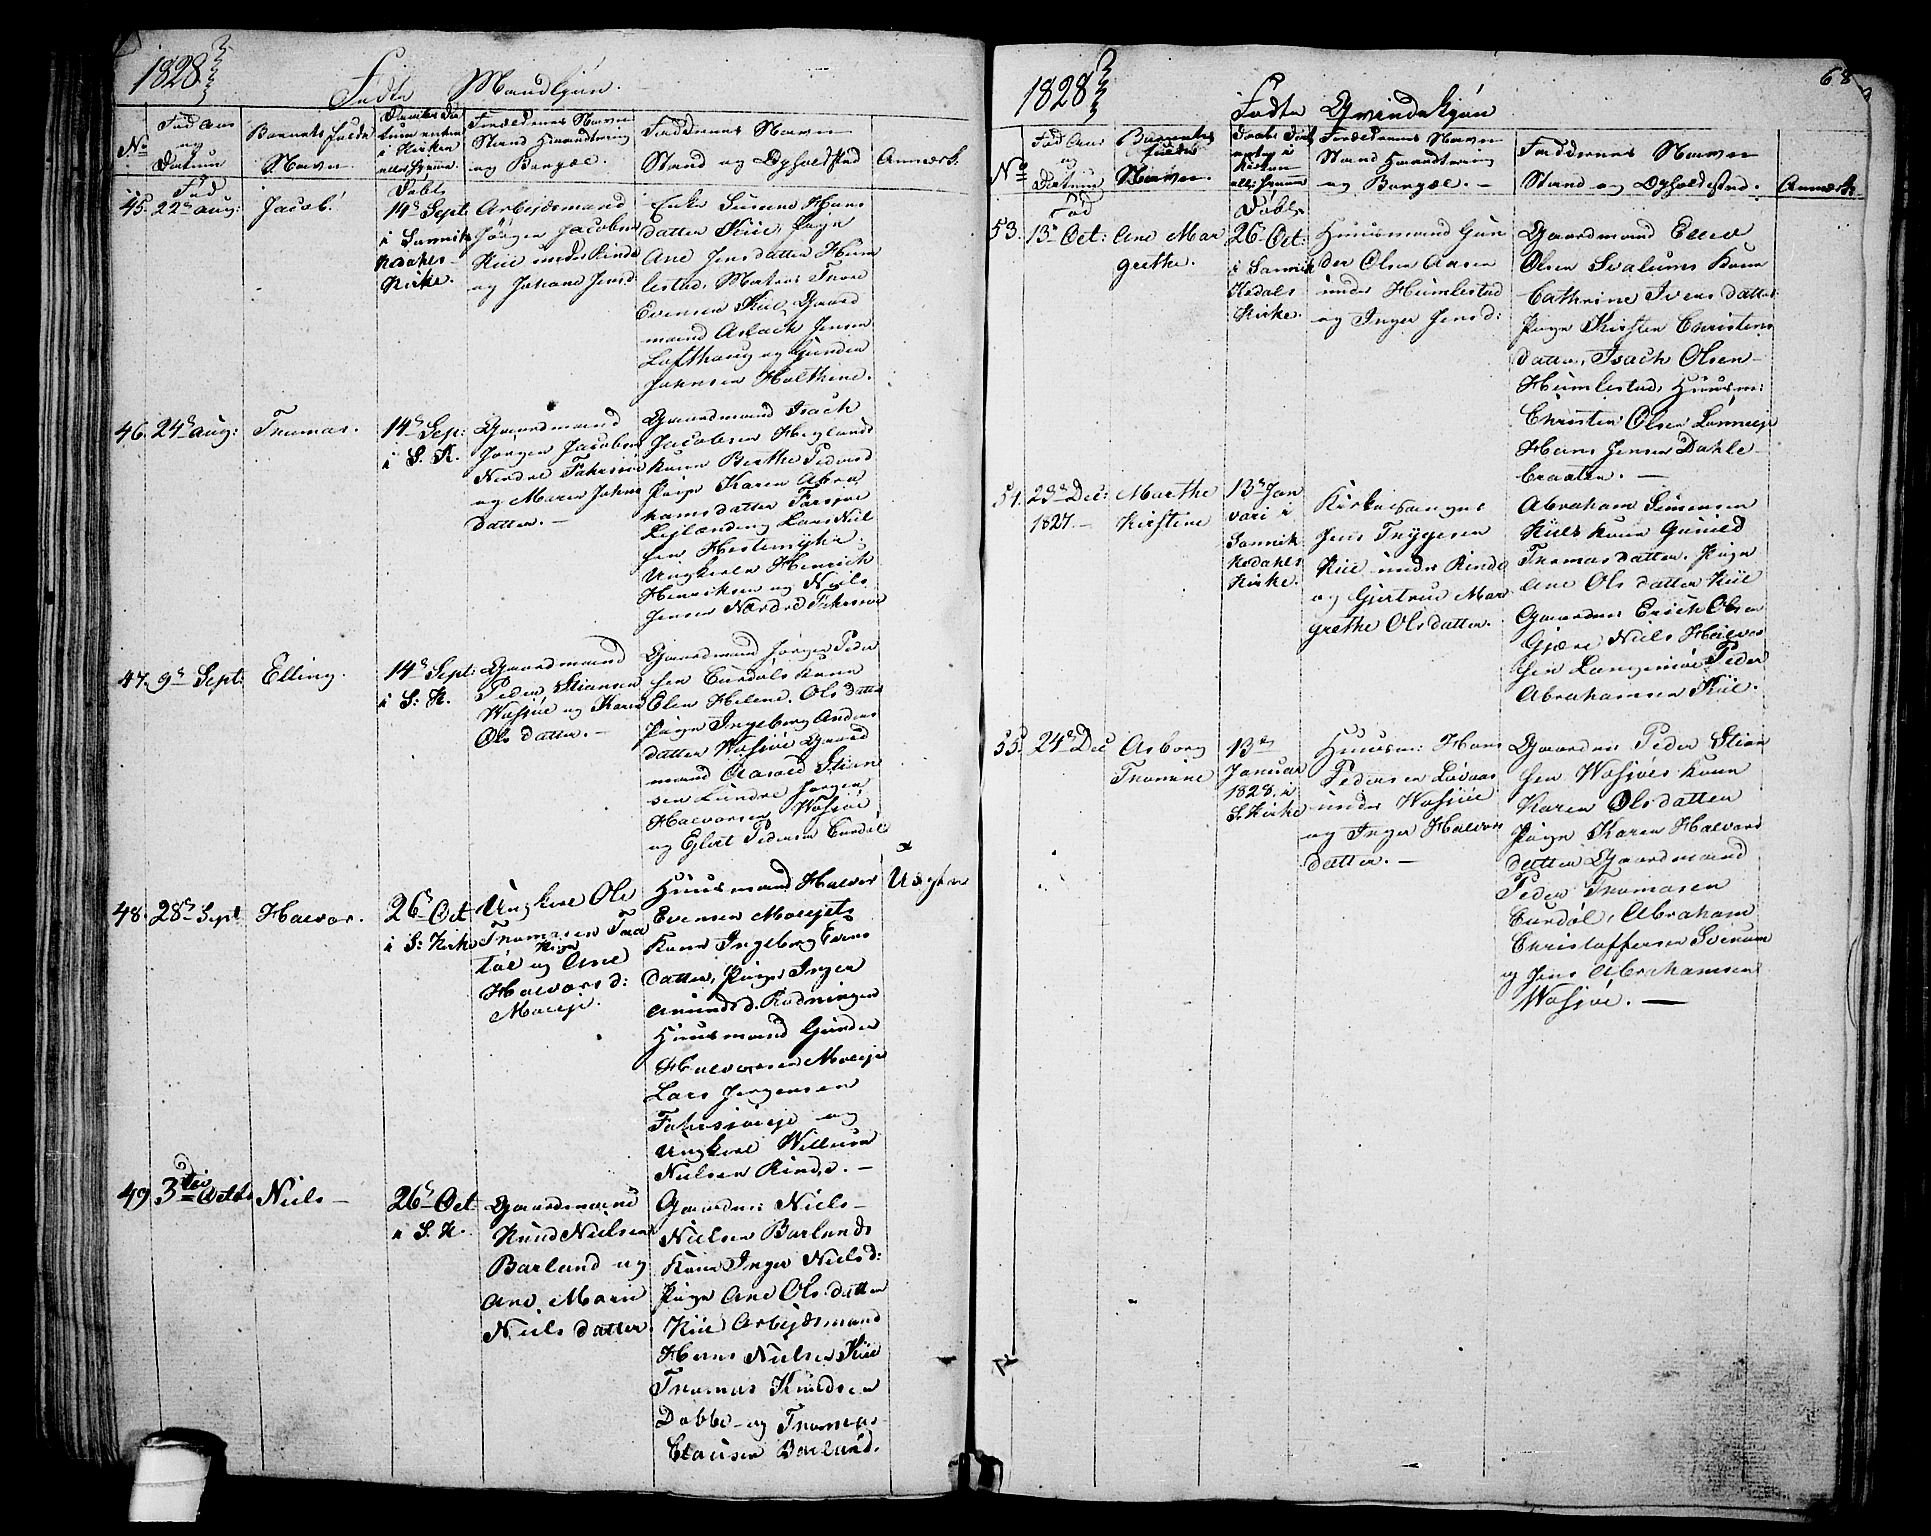 1828
Fødte Mandkjøn.
No
Fød Aar
og
Datum
Barnets fulde
Navn.
Daabs Da
tum enten
i Kirken
eller hjemme
Forældrenes Navn
Stand Haandtering
og Bopæl.
Faddernes Navn
Stand og Opholdsted
Anmærk.
Fød
45. 22de aug:
Jacob.
Døbt
14de Sept:
i Sannik
Kedahls
Kirke.
Arbejdsmand
Jørgen Jacobsen
Kiil under Rinde
og Johane Jensd
Enke Susane Hans
datter Kiil, Pige
Ane Jensdatter Hum
lestad, Matros Thore
Evensen Kiil, Gaard
mand Aslach Jensen
Lofthaug og Gunder
Johnsen Holthene.
46. 24de aug:
Thomas.
14de Sep:
i S. K.
Gaardmand
Jørgen Jacobsen
Nordre Fikesøe
og Maren Johns
datter. —
Gaardmand Isach
Jacobsen Heglands
kone Berthe Pedersd
Pige Karen Abra
hamsdatter Farsjøe
Lejlænding Lars Niel
sen Hestemyhr.
Ungkarle Henrich
Henriksen og Niels
Jensen Nordre Fikesøe
47. 9de Sept:
Elling.
14de Sept:
i S: K.
Gaardmand
Peder Stiansen
Wasjøe og Karen
Ols datter. —
Gaardmand Jørgen Peder
sen Eurdals kone
Elen Helene Olsdatter
Pige Ingeborg Anders
datter Wasjøe Gaard
mand Oluf Stian
sen Lundre Jørgen
Halvorsen Wasjøe
og Eglert Pedersen Eurdal
48. 28de Sept
Halvor.
26de Oct
i S: Kirke
Ungkarl Ole
Thomassen Taa
tøe og Pige Ane
Halvorsd:
Moleeje.
Huusmand Halvor
Evensen Moeejets
Kone Ingeborg Evens
datter, Pige Inger
Amundsd. Rødningen
Huusmand Gunder
Halvorsen Moeeje
Lars Jørgensen
Fahrsjøeeje og
Ungkarl Willum
Nielsen Rinde. —
Uægte
49 3die Octob
Niels —
26de Oct
i S. K.
Gaardmand
Knud Nielsen
Barland og
Ane Marie
Niels datter
Gaardm: Niels
Nielsen Barlands
Kone Inger Nielsd:
Pige Ane Ols datter
Kiil Arbejdsmand
Hans Nielsen Kiil
Thomas Knudsen
Dobbe og Thomas
Clausen Barland.
68
1828
Fødte Qvindekjøn
No
Fød Aar
og
Datum
Barnets
fulde
Navn.
Daabs Dat
enten i
Kirken
eller hjemme
Forældrenes Navn
Stand Haandtering
og Bopæl. —
Faddernes Navn
Stand og Opholdsted.
Anmærk
Fød
53. 13de Oct:
Ane Mar
grethe.
Døbt
26 Oct:
i Sannik
Kedals
Kirke.
Huusmand Gun
der Olsen Aasen
under Humlestad
og Inger Jensd:
Gaardmand Ellev
Olsen Svalums Kone
Cathrine Ivers datter
Pige Kirsten Christens
datter, Isach Olsen
Humlestad, Huusm:
Christen Olsen Lønneeje
Hans Jensen Dahle
braaten. —
54. 23de Dec:
1827. —
Marthe
Kirstine
13de Jan
vari i
Sannik
Kedahls
Kirke.
Kirkesanger
Jens Trygesen
Kiil under Rinde
og Gjertrud Mar
grethe Olsdatter.
Abraham Simensen
Kiils kone Gunild
Thomasdatter, Pige
Ane Ols datter Kiil
Gaardm: Erich Olsen
Gjære Niels Halvor
sen Langemoe Peder
Abrahamsen Kiil.
55. 24de Dec
Asborg
Thomine
13de
Januar
1828, i
S. Kirke
Huusm: Hans
Pedersen Løvaas
under Wasjøe
og Inger Halvors
datter. —
Gaardm: Peder Stian
sen Wasjøes Kone
Karen Olsdatter
Pige Karen Halvors
datter Gaardmand
Peder Thomasen
Eurdøl, Abraham
Christoffersen Svenum
og Jens Abrahamsen
Wasjøe. —